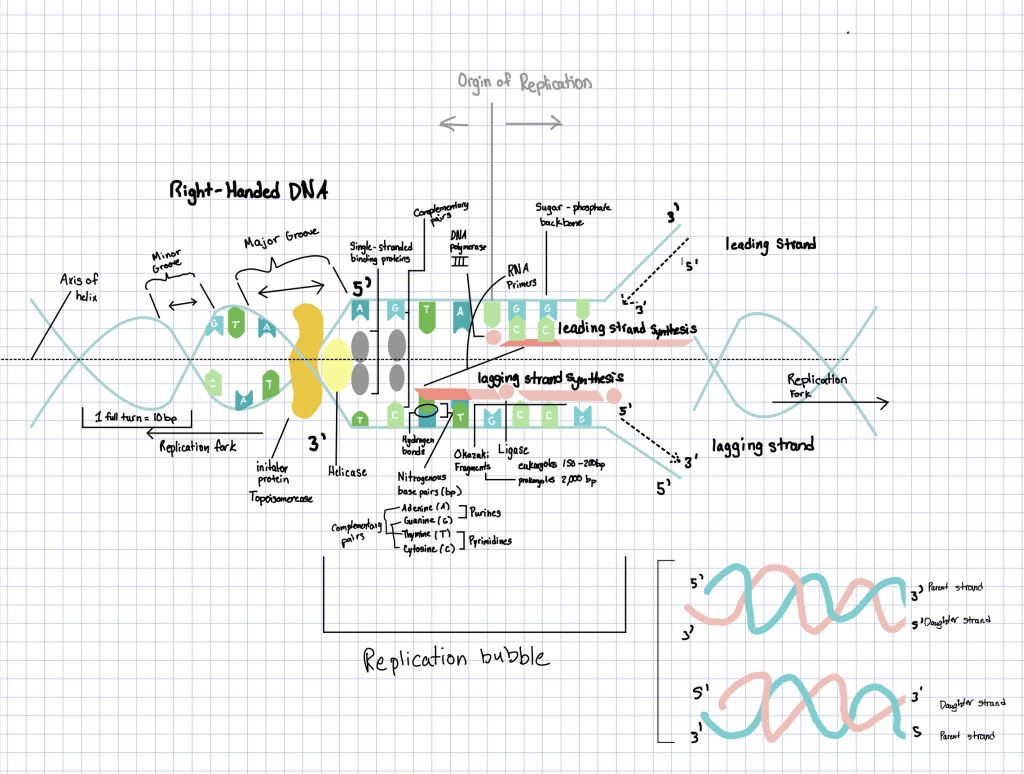 Orgin of Replication
Right-Handed DNA
Complementary
pairs
Sugar-phosphate
backbone
3'
Minor
Groove
Major Groove
Single-stranded
binding proteins
DNA
Polymerase
III
leading strand
Axis of
helix
RNA
Primers
5'
5'
3'
G
T
A
A
G
T
A
G
G
C
C
leading strand synthesis
lagging strand synthesis
Replication
Fork
C
A
T
T
C
T
G
C
C
G
5'
1 full turn = 10 bp
Replication fork
3'
Hydrogen
bonds
Okazaki
Fragments
Ligase
eukaryotes 150-200bp
prokaryotes 2,000 bp
3'
5'
lagging strand
initator
protein
Topoisomerease
Helicase
Nitrogenous
base pairs (bp)
Adenine (A)
Guanine (G)
Purines
Complementary
pairs
Thymine (T)
Cytosine (C)
Pyrimidines
Replication bubble
5'
3' Parent strand
5' Daughter strand
3'
5'
3' Daughter strand
3'
5 Parent strand